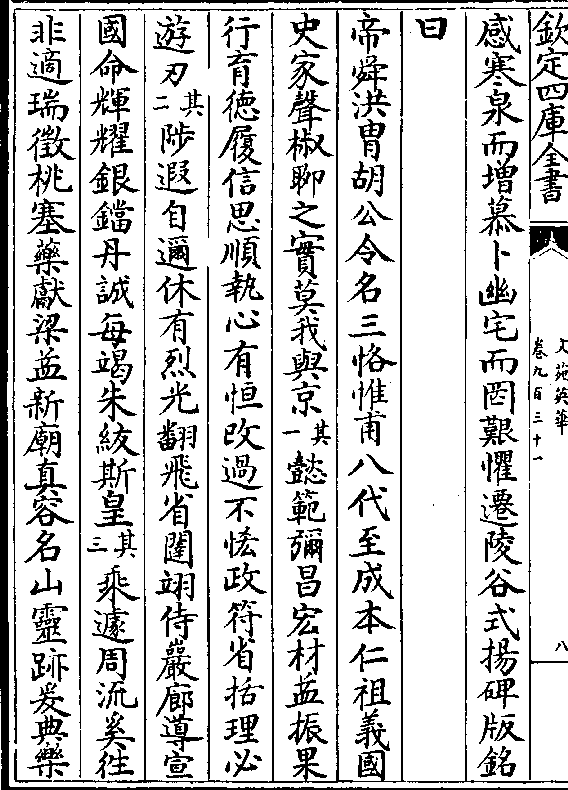 欽定四庫全書
文苑英華
卷九百三十一
八
感寒泉而增慕卜幽宅而罔艱懼遷陵谷式揚碑版銘
曰
帝舜洪胄胡公令名三恪惟甫八代至成本仁祖義國
史家聲椒聊之實莫我與京其一懿範彌昌宏材益振果
行育德履信思順執心有恒改過不恡政符省括理必
游刃其二陟遐自邇休有烈光翻飛省闥翊侍嚴廊導宣
國命輝耀銀鐺丹誠每竭朱紱斯皇其三乘遽周流奚往
非適瑞徵桃塞藥獻梁益新廟真容名山靈跡爰典樂